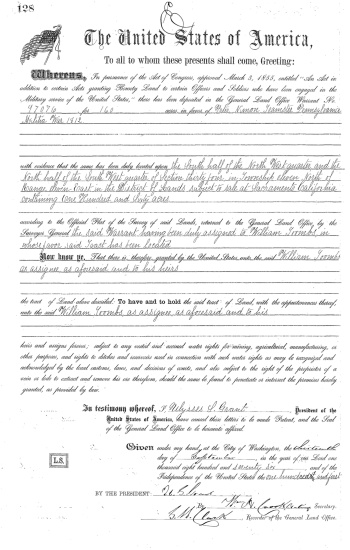 128
The United States of America,
To all to whom these presents shall come, Greeting:
Whereas, In pursuance of the Act of Congress, approved March 3, 1855, entitled "An Act in
addition to certain Acts granting Bounty Land to certain Officers and Soldiers who have been engaged in the
Military service of the United States," there has been deposited in the General Land Office Warrant No.
97076 for 160 acres in favor of Kimon Teamster Pennsylvania
Militia War 1812
with evidence that the same has been duly located upon the South half of the North West quarter and the
North half of the South West quarter of Section thirty four in Township eleven North of
Range seven East in the District of Lands subject to sale at Sacramento California
containing One Hundred and Sixty acres
according to the Official Plat of the Survey of said Lands, returned to the General Land Office by the
Surveyor General the said Warrant having been duly assigned to William Toombs in
whose favor said Tract has been located
Now know ye, That there is, therefore, granted by the United States, unto the said William Toombs
as assignee as aforesaid and to his heirs
the tract of Land above described: To have and to hold the said tract of Land, with the appurtenances thereof,
unto the said William Toombs as assignee as aforesaid and to his
heirs and assigns forever; subject to any vested and accrued water rights for mining, agricultural, manufacturing, or
other purposes, and rights to ditches and reservoirs used in connection with such water rights as may be recognized and
acknowledged by the local customs, laws, and decisions of courts, and also subject to the right of the proprietor of a
vein or lode to extract and remove his ore therefrom, should the same be found to penetrate or intersect the premises hereby
granted, as provided by law.
In testimony whereof, I, Ulysses S. Grant President of the
United States of America, have caused these letters to be made Patent, and the Seal
of the General Land Office to be hereunto affixed.
Given under my hand, at the City of Washington, the
day of September in the year of our Lord one
thousand eight hundred and seventy six and of the
Independence of the United States the one hundredth and first
L.S.
BY THE PRESIDENT U. S. Grant
By Secretary.
Recorder of the General Land Office.